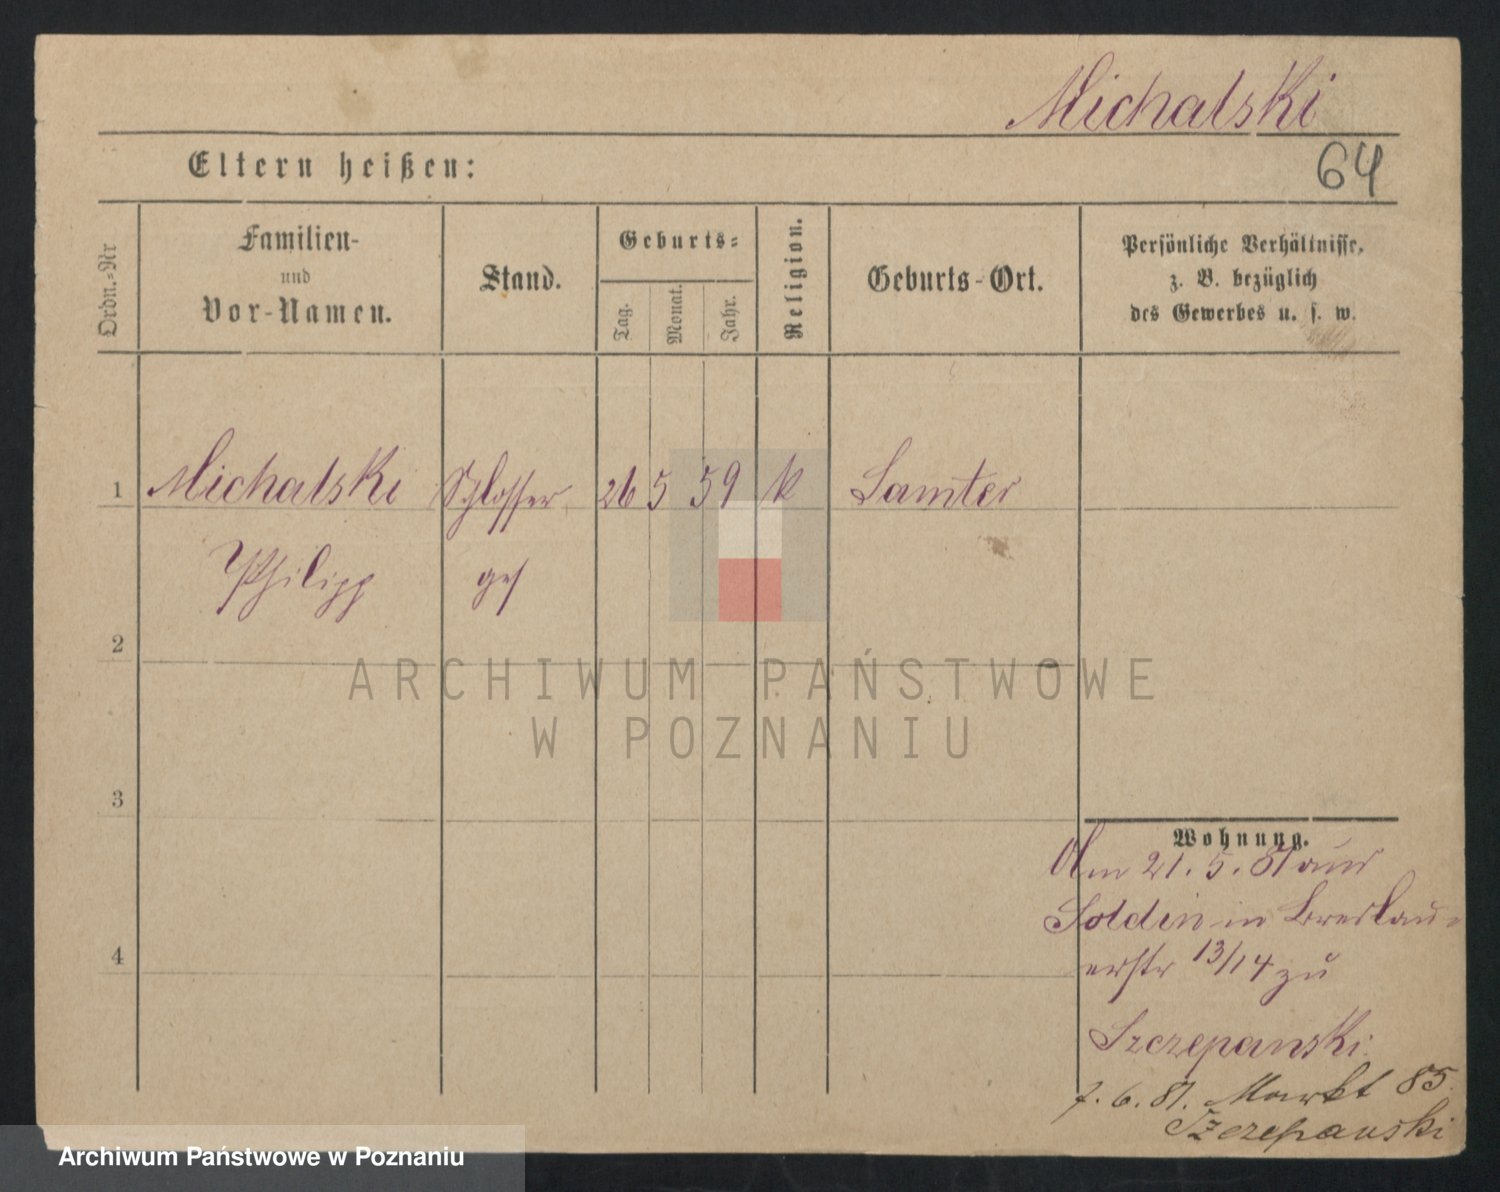 Michalski
64
Eltern heißen:
Ordn.-Nr
Familien-
und
Vor-Namen.
Stand.
Geburts-
Tag.
Monat.
Jahr.
Religion.
Geburts-Ort.
Persönliche Verhältnisse,
z. B. bezüglich
des Gewerbes u. s. w.
1 Michalski Schlosser 26 5 59 k Samter
Philipp ges
2
3
4
Wohnung.
Am 21. 5. 81 aus
Soldin in Breslau-
erstr 13/14 zu
Szczepanski.
7. 6. 81. Markt 85.
Szczepanski
ARCHIWUM PAŃSTWOWE
W POZNANIU
Archiwum Państwowe w Poznaniu